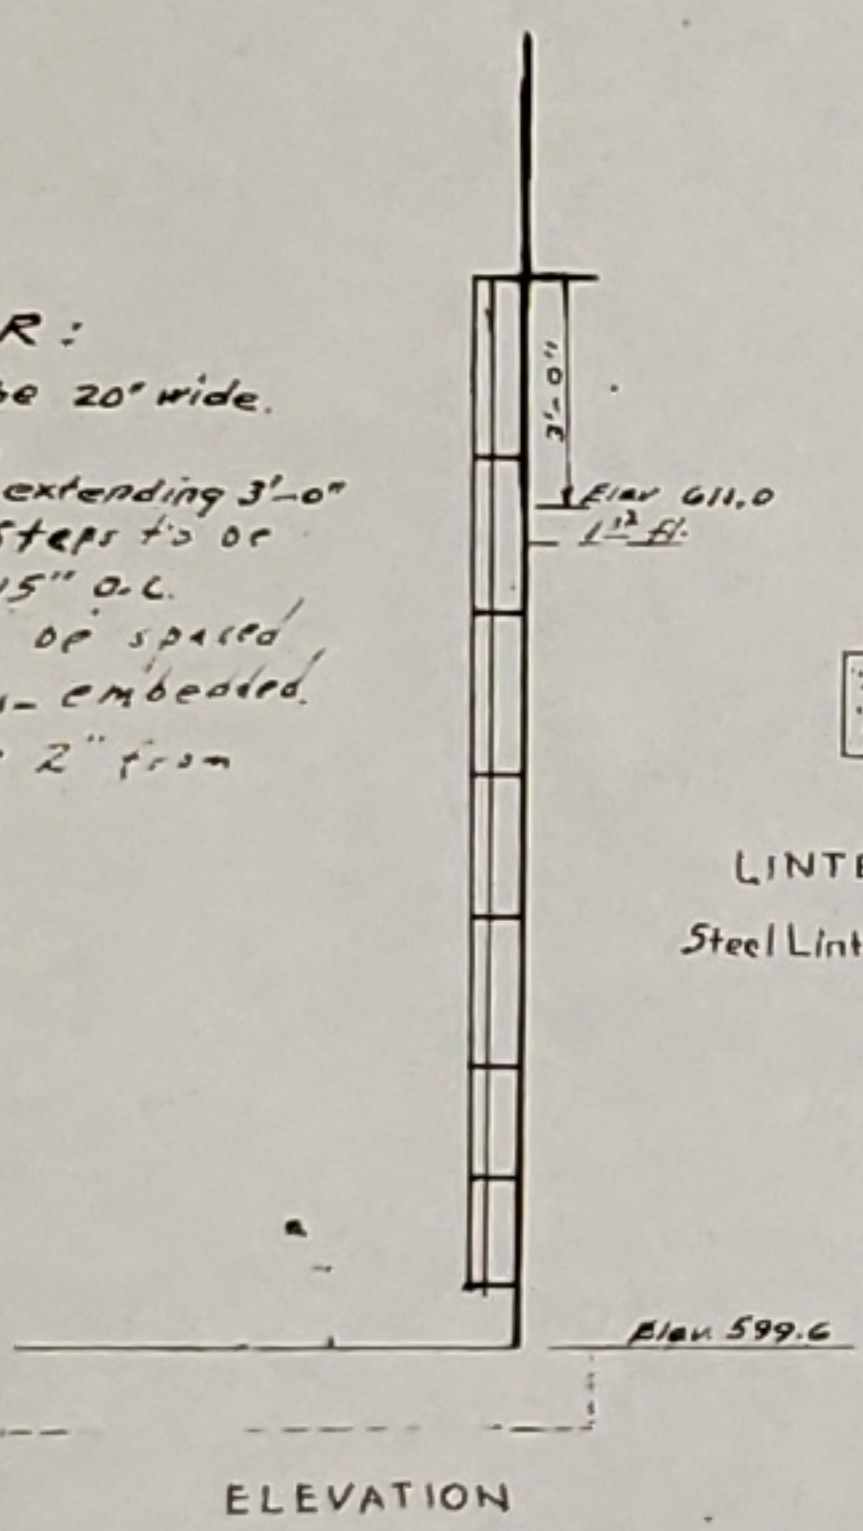 R:
be 20" wide.
extending 3'-0"
Steps to be
15" O.C.
be spaced
embedded.
2" from
3'-0"
Elev 611.0
1st fl.
LINTE
Steel Lint
Elev. 599.6
ELEVATION